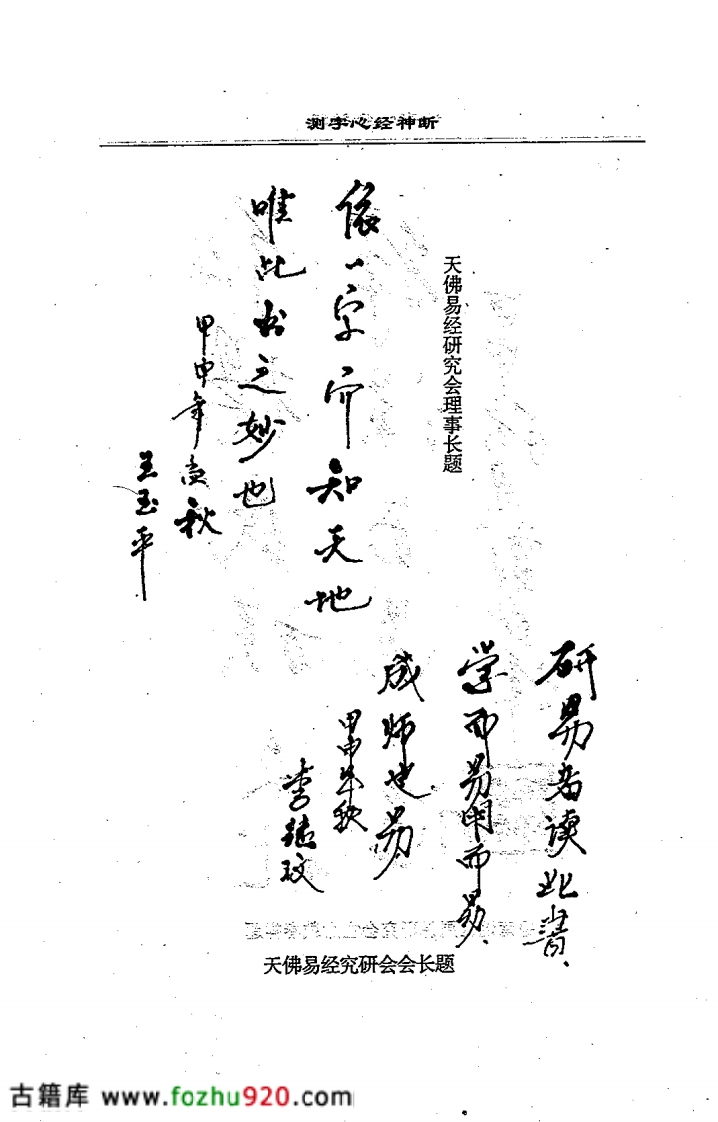 测字心经神断
天佛易经研究会理事长题
依一字而知天地
唯此书之妙也
甲申年秋
王玉平
研易者读此書、
学而易用而易、
成师也易
甲申年秋
李玟
天佛易经究研会会长题
古籍库 www.fozhu920.com